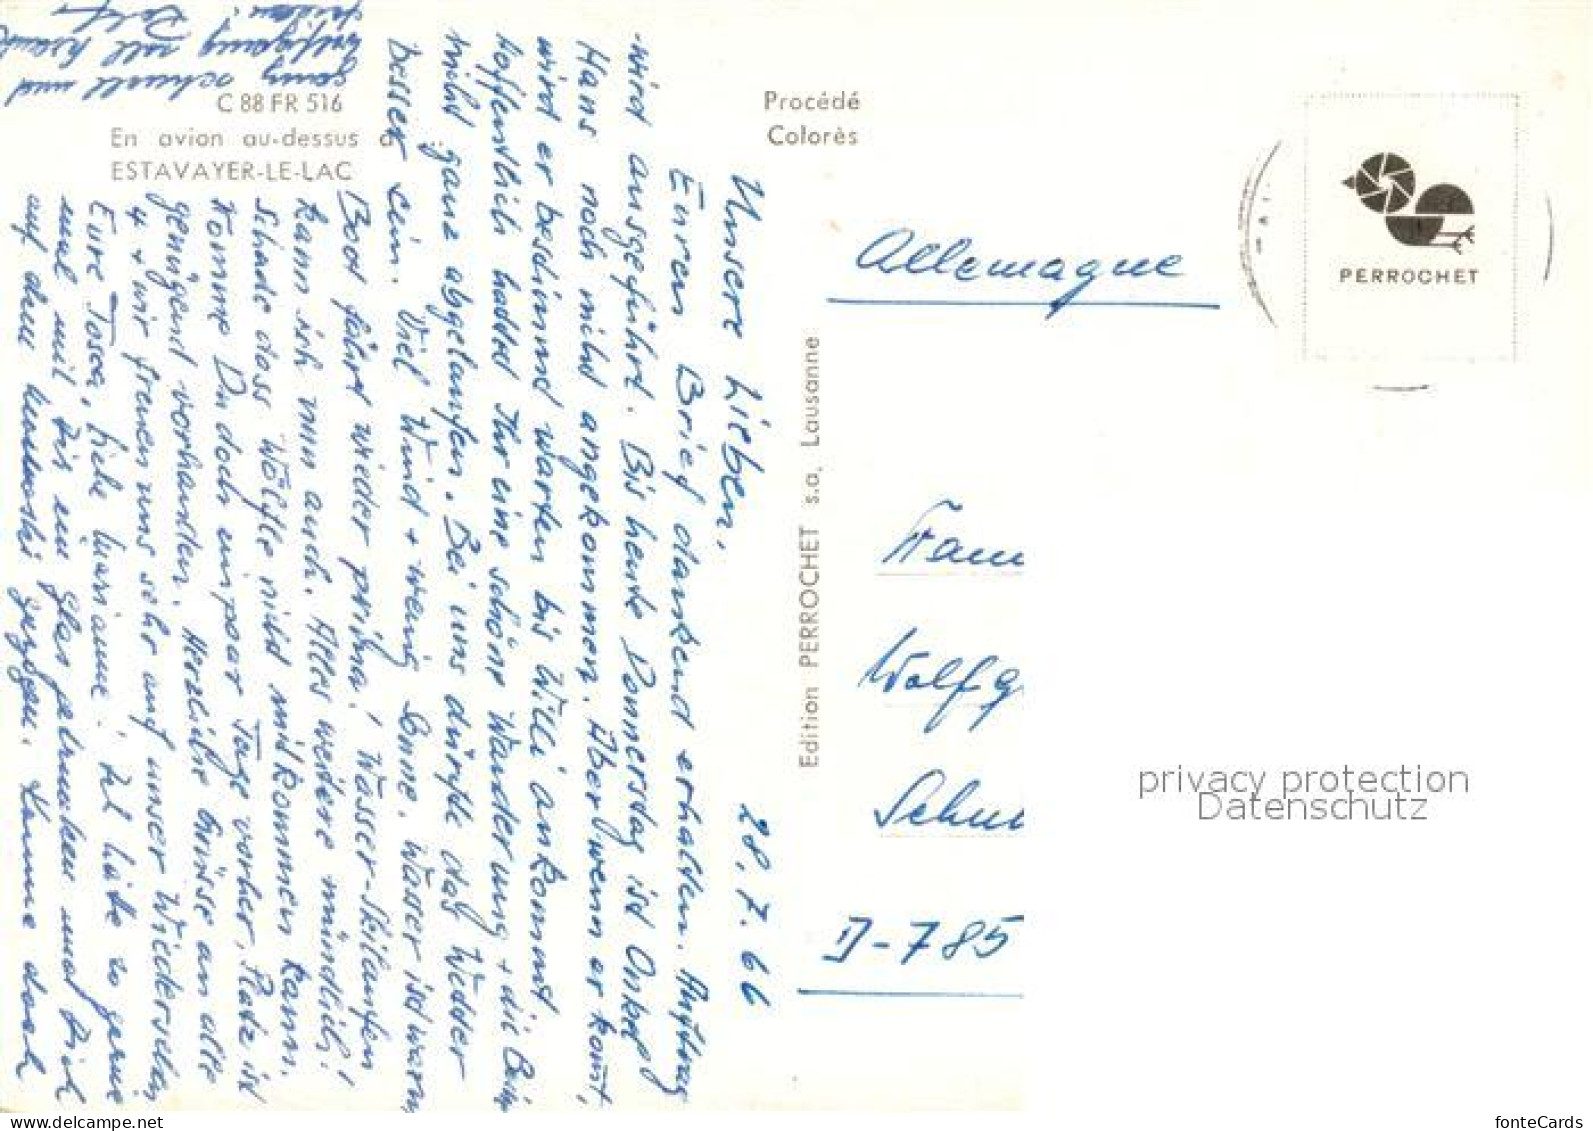 C 88 FR 516
En avion au-dessus d
ESTAVAYER-LE-LAC
Procédé
Colorès
PERROCHET
Edition PERROCHET s.a. Lausanne
Allemagne
Fam
Wolfg
Schu
D-785
privacy protection
Datenschutz
28.7.66
Unsere Lieben,
Euren Brief dankend erhalten. Auftrag
wird ausgeführt. Bis heute Donnerstag ist Onkel
Hans noch nicht angekommen. Aber wenn er komt,
wird er bestimmt warten bis Willi ankommt.
Hoffentlich hattet Ihr eine schöne Wanderung + die Beine
nicht ganz abgelaufen. Bei uns dürfte das Wetter
besser sein. Viel Wind + wenig Sonne. Wasser ist warm
Boot fährt wieder prima! Wasser-Skilaufen
kann ich nun auch. Alles weitere mündlich!
Schade dass Wölfle nicht mitkommen kann.
Komme Du doch ein paar Tage vorher, Platz ist
genügend vorhanden. Herzliche Grüsse an alle
4 + wir freuen uns sehr auf unser Wiedersehen
Eure Tosca, liebe Marianne! Ich hätte so gerne
mal mit Dir ein Glas getrunken und Dich
auf dem gezogen. Komme doch
ganz schnell und
Wolfgang soll